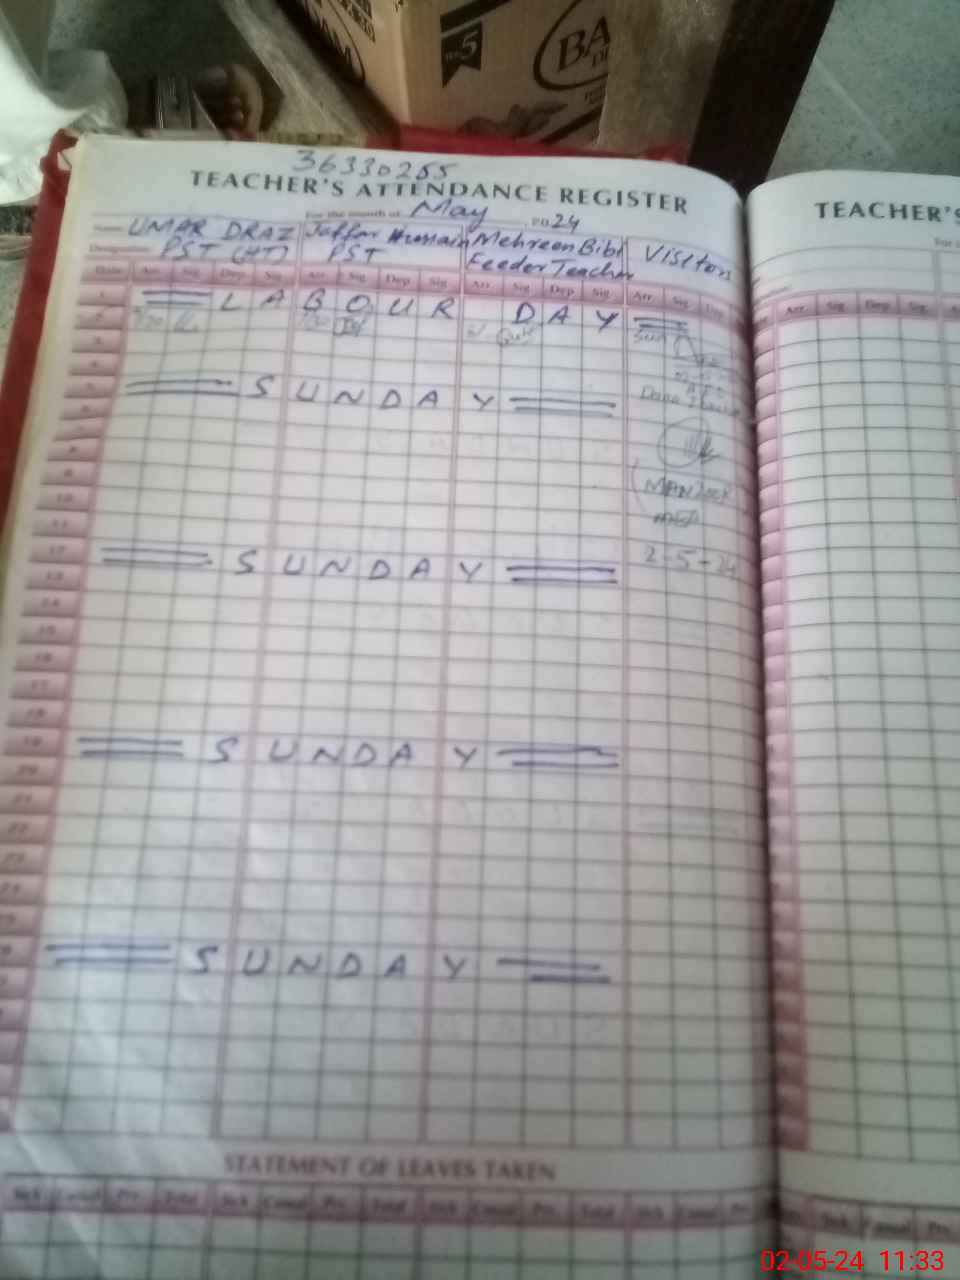 No 5
BA
36330255
TEACHER'S ATTENDANCE REGISTER
For the month of May 2024
Name UMAR DRAZ Jaffar Hussain Mehreen Bibi Visitors
Designation PST (HT) PST Feeder Teacher
Date Arr. Sig. Dep Sig. Arr. Sig. Dep Sig. Arr. Sig Dep Sig. Arr. Sig. Dep
1 LABOUR DAY
2 7/30
3
4
5 SUNDAY
6
7
8
9
10
11
12 SUNDAY
2-5-24
13
14
15
16
17
18
19 SUNDAY
20
21
22
23
24
25
26 SUNDAY
STATEMENT OF LEAVES TAKEN
Sick Casual Prv. Total Sick Casual Prv. Total Sick Casual Prv. Total Sick Casual Prv.
TEACHER'S
Arr. Sig. Dep Sig.
Sick Casual Prv.
02-05-24 11:33